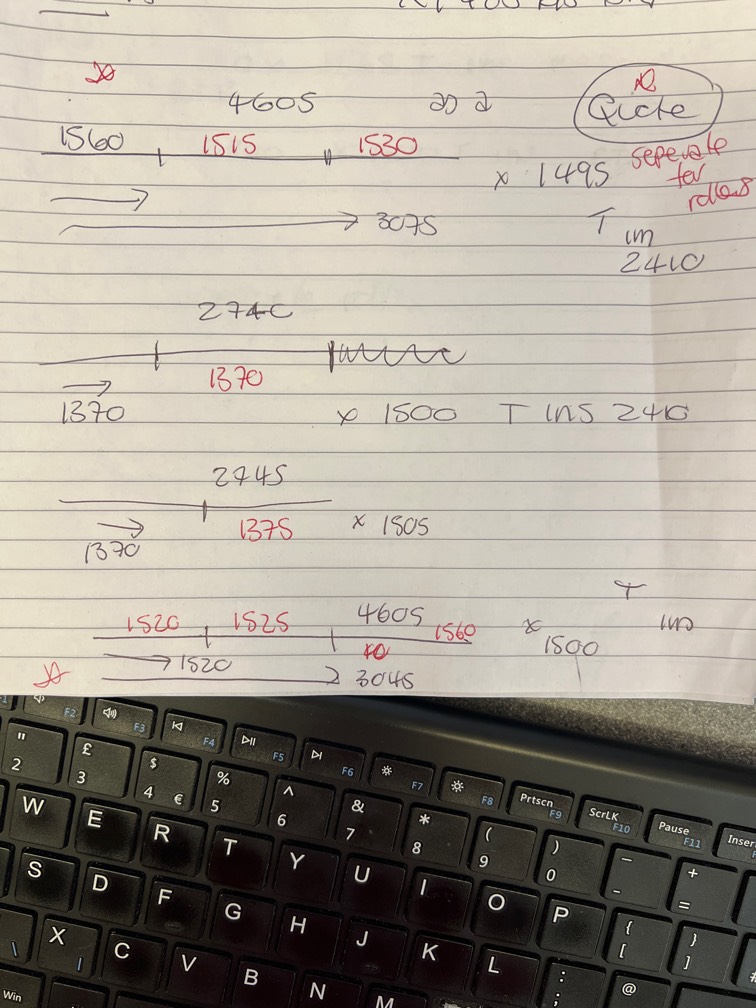 4605
Quote
1560 1515 1530
x 1495 seperate
for
3075 T
im
2410
2740
1370
1370
x 1500 T ins 2410
2745
1375 x 1505
1370
T
1520 1525 4605 1560 x ins
1500
1520
3045
F2 F3 F4 F5 F6 F7 F8 Prtscn F9 ScrLK F10 Pause F11 Inser
" 2 £ 3 $ 4 € % 5 ^ 6 & 7 * 8 ( 9 ) 0 _ - + =
W E R T Y U I O P { [ } ]
S D F G H J K L : ; @
\ | X C V B N M
Win